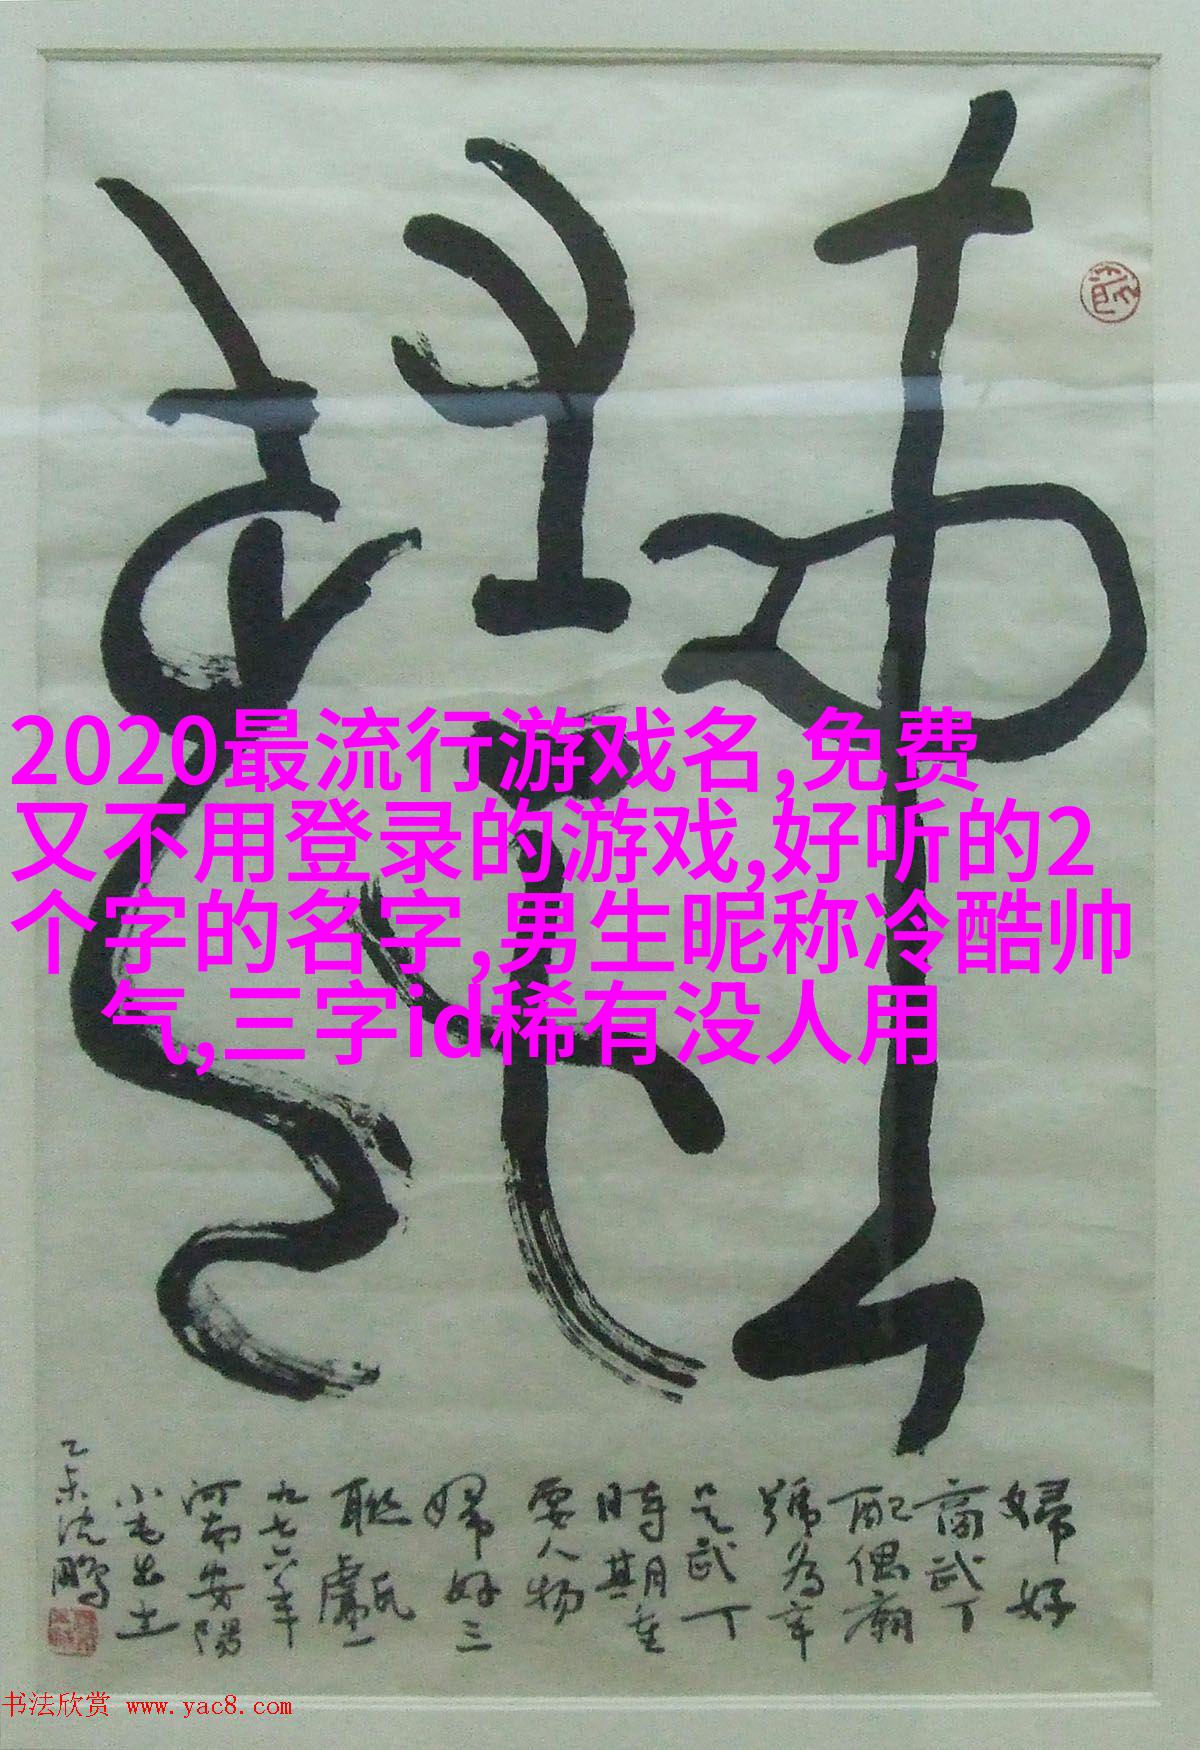 2020最流行游戏名,免费
又不用登录的游戏,好听的2
个字的名字,男生昵称冷酷帅
气,三字id稀有没人用
婦好
商武丁
配偶廟
號为辛
是武丁
時期重
要人物
婦好三
聯甗一
九七六年
河南安陽
小屯出土
乙未沈鹏
书法欣赏 www.yac8.com